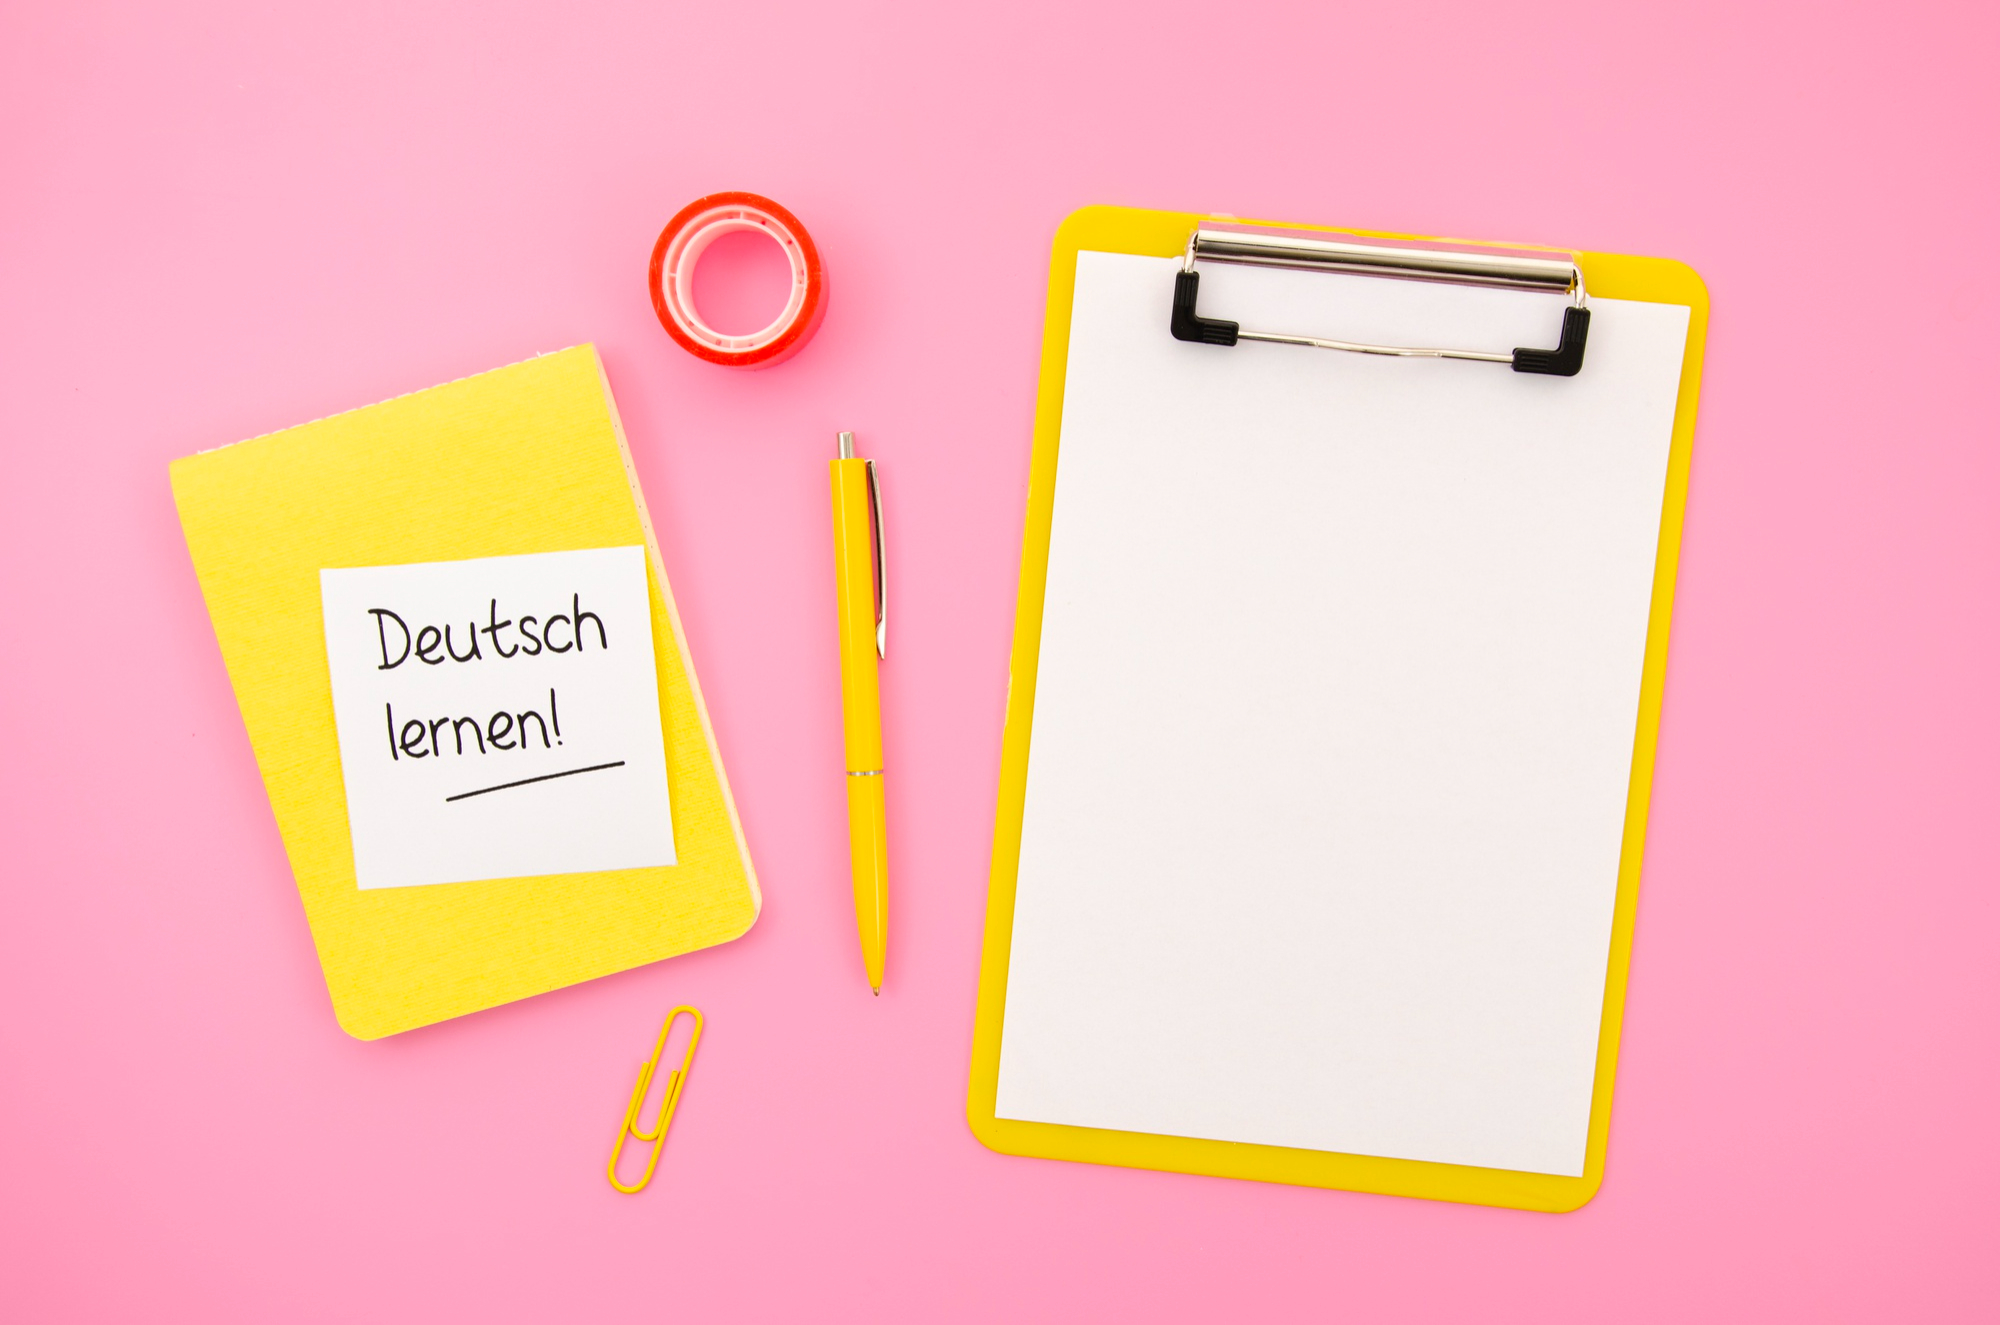 Deutsch
lernen!